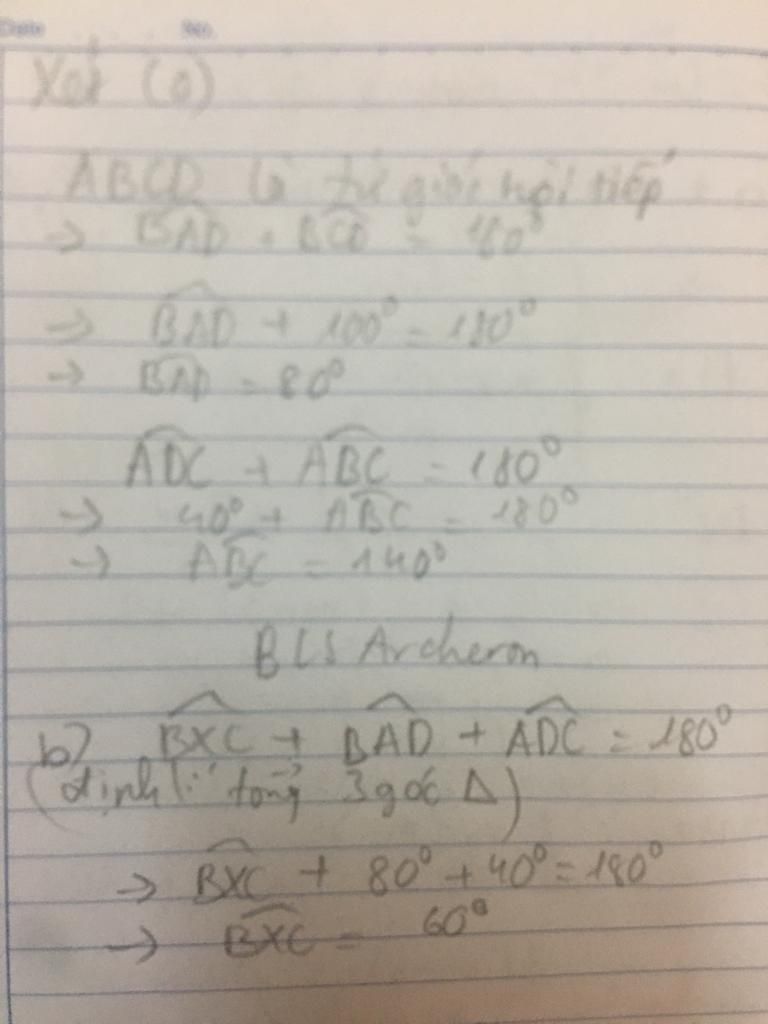 Date No.
Xét (O)
ABCD là tứ giác nội tiếp
→ BAD + BCD = 180°
→ BAD + 100° = 180°
→ BAD = 80°
ADC + ABC = 180°
→ 40° + ABC = 180°
→ ABC = 140°
BLS Archeron
b) BXC + BAD + ADC = 180°
(định lí tổng 3 góc Δ)
→ BXC + 80° + 40° = 180°
→ BXC = 60°